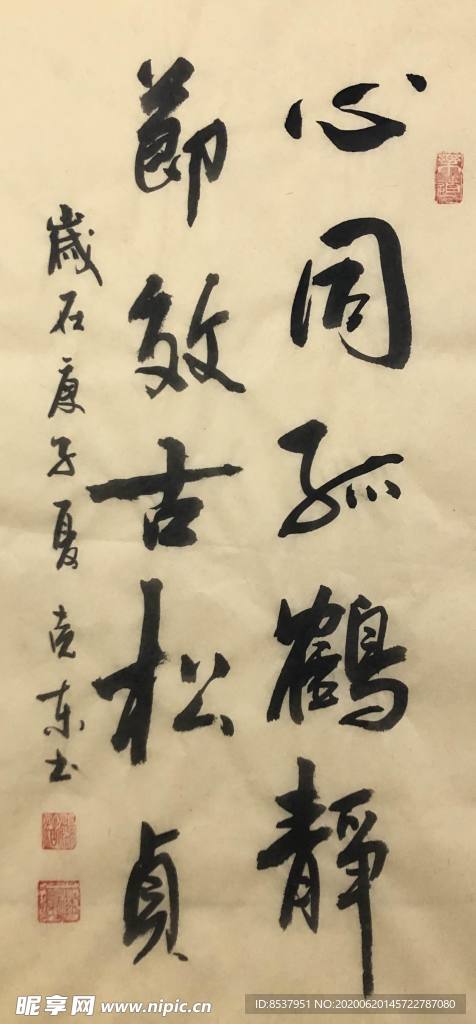 心同孤鶴靜
節效古松貞
歲在庚子夏 克東书
昵享网 www.nipic.cn
ID:8537951 NO:20200620145722787080